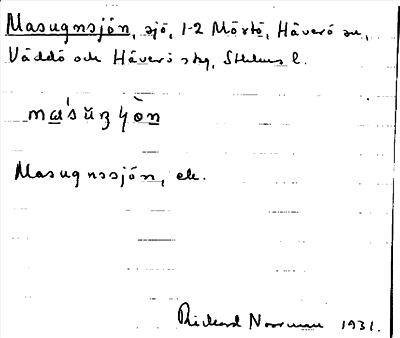 Masugnsjön, sjö, 1-2 Mörtö, Häverö sn,
Väddö och Häverö skg, Sthlms l.
masŭnʒ ɥòn
Masugnssjön, ek.
Rickard Norrman 1931.